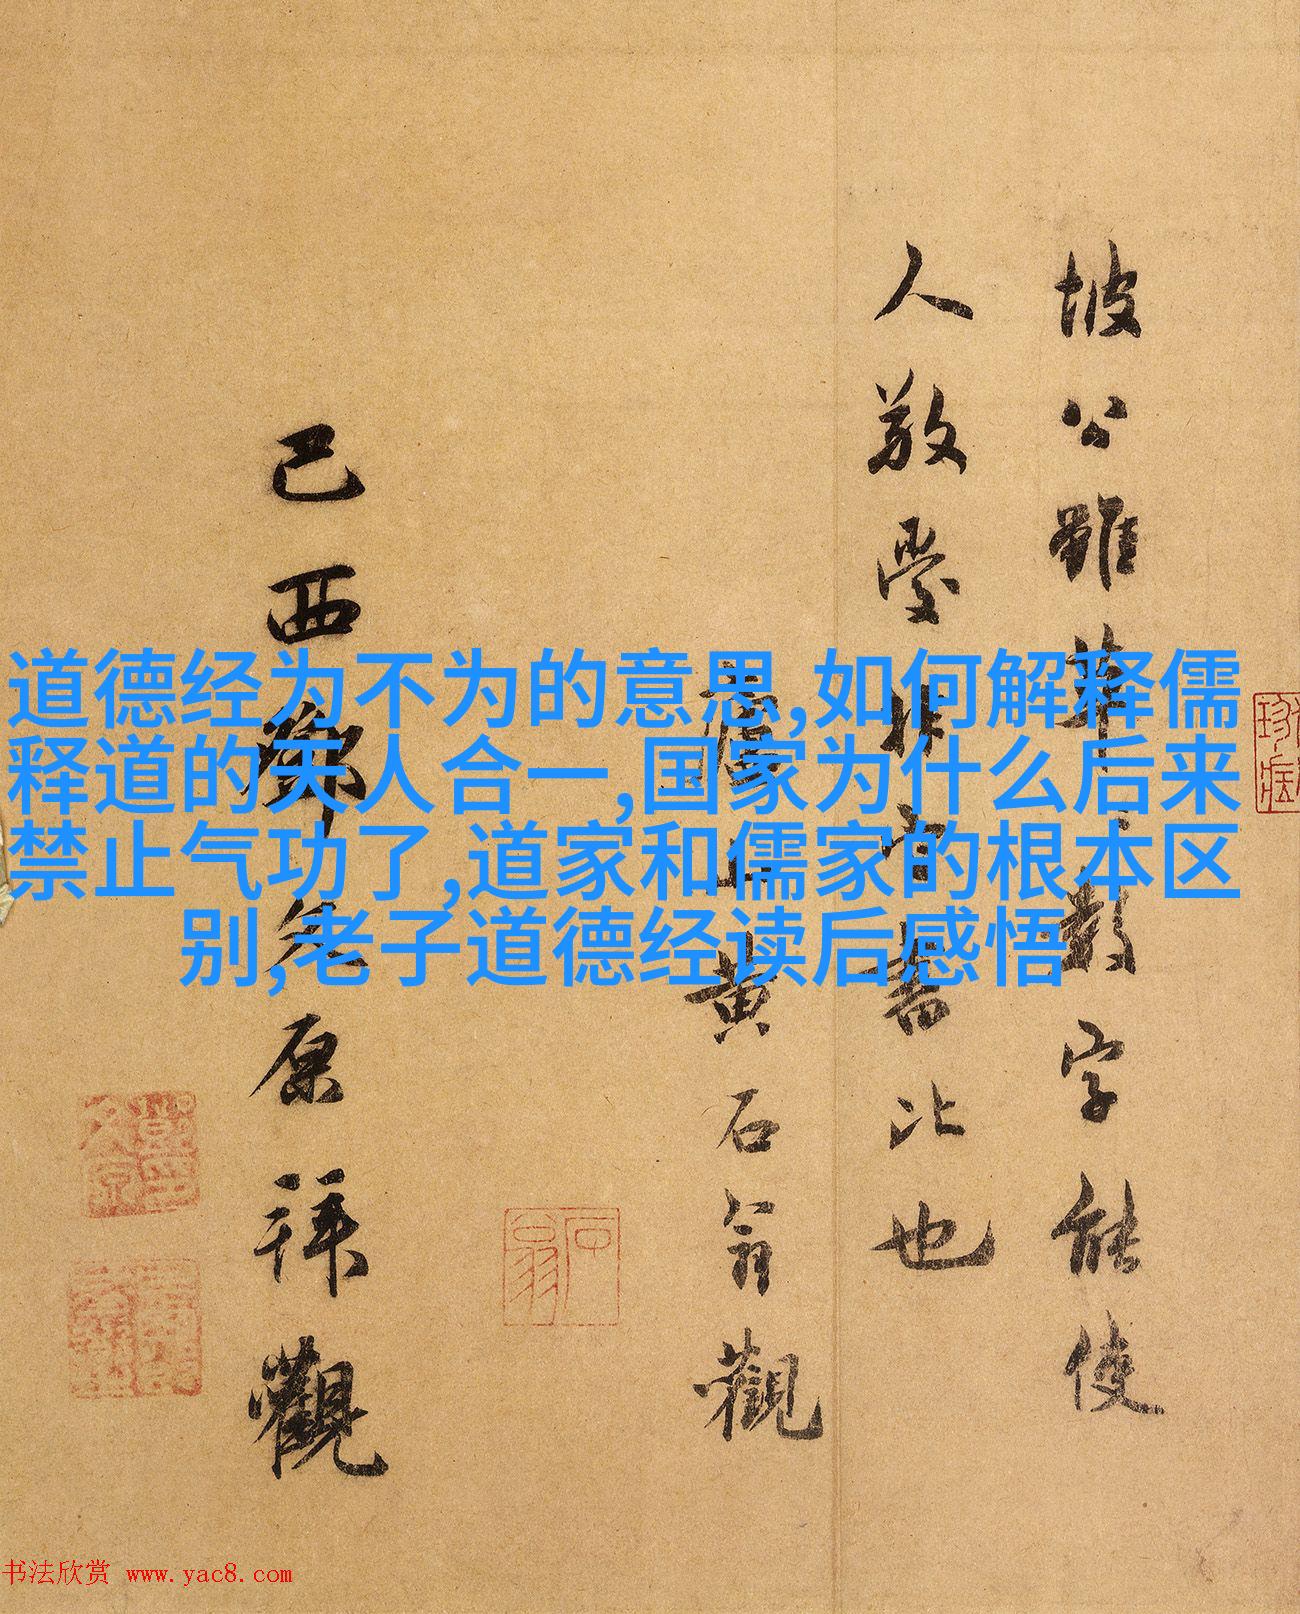 坡公雖草草數字能使
人敬愛
書比也
黄石翁觀
己酉鄧
原拜觀
道德经为不为的意思,如何解释儒
释道的天人合一,国家为什么后来
禁止气功了,道家和儒家的根本区
别,老子道德经读后感悟
石翁
书法欣赏 www.yac8.com